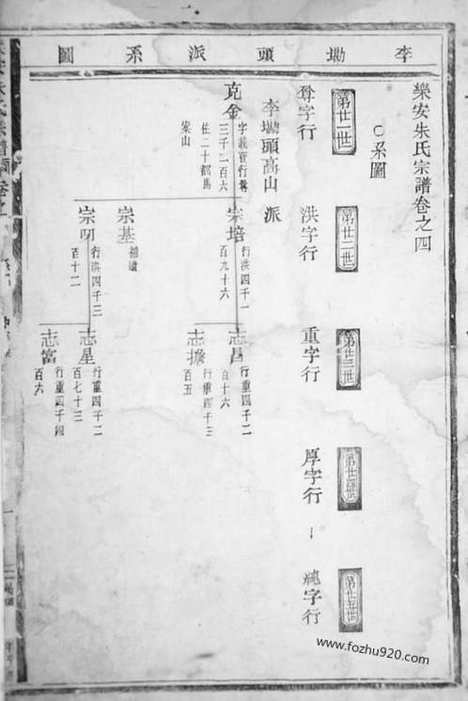 李坳頭派系圖
樂安朱氏宗譜卷之四
○系圖
第廿一世
第廿二世
第廿三世
第廿四世
第廿五世
尊字行
洪字行
重字行
厚字行
純字行
李坳頭高山派
克金
三千二百六
住二十都馬
宗培
行洪四千一
百九十六
志昌
行重四千二
百十六
志據
行重四千三
百五
宗基
宗明
行洪四千三
百十二
志星
行重四千二
百七十三
志富
行重四千四
百六
www.fozhu920.com